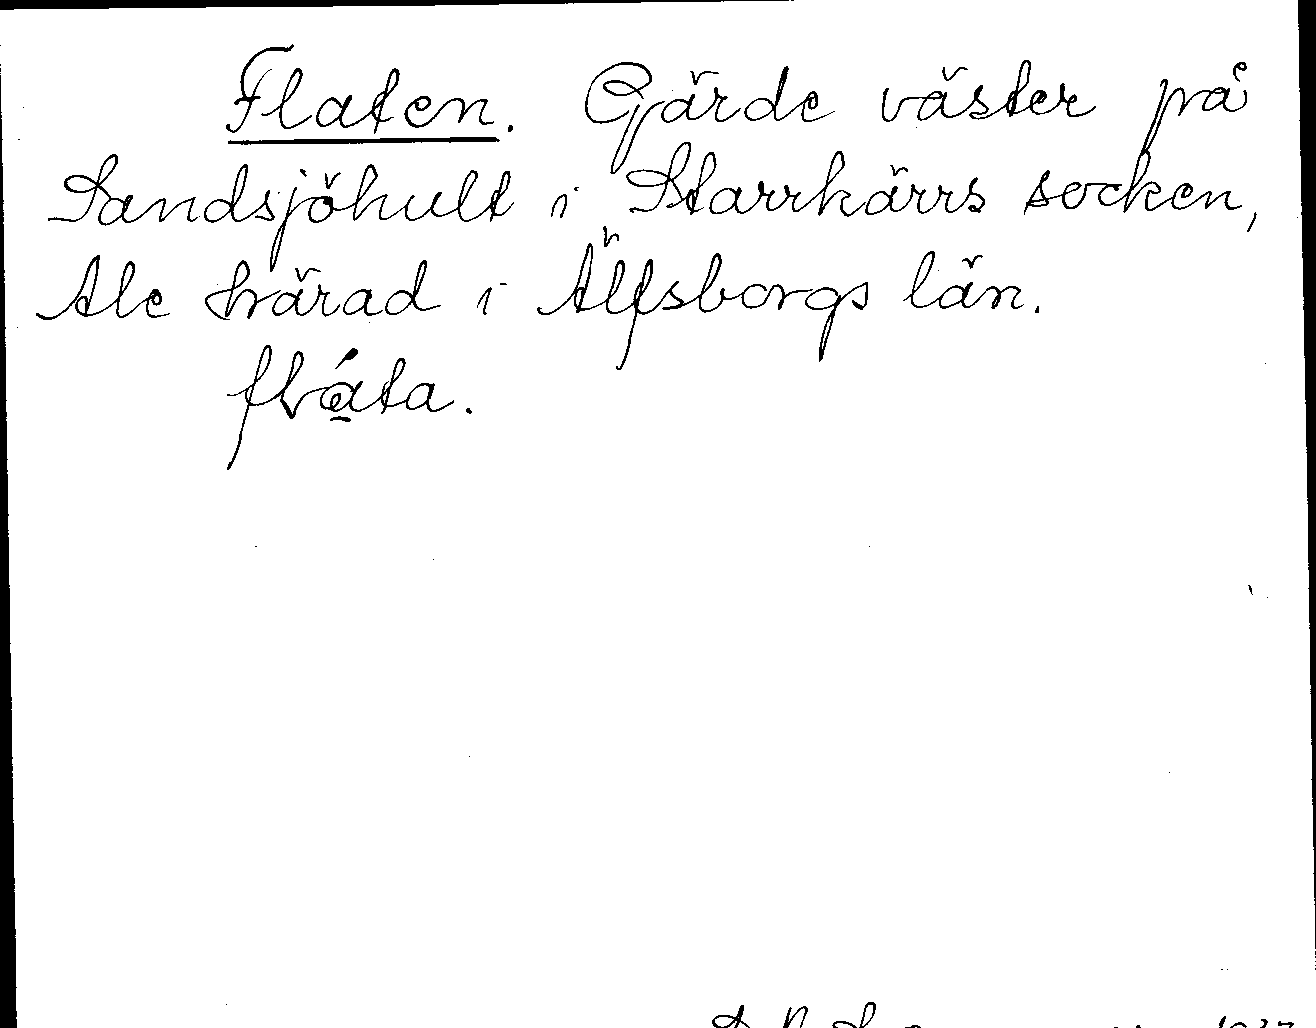 Flaten. Gärde väster på
Sandsjöhult i Starrkärrs socken,
Ale härad i Älfsborgs län.
fláta.